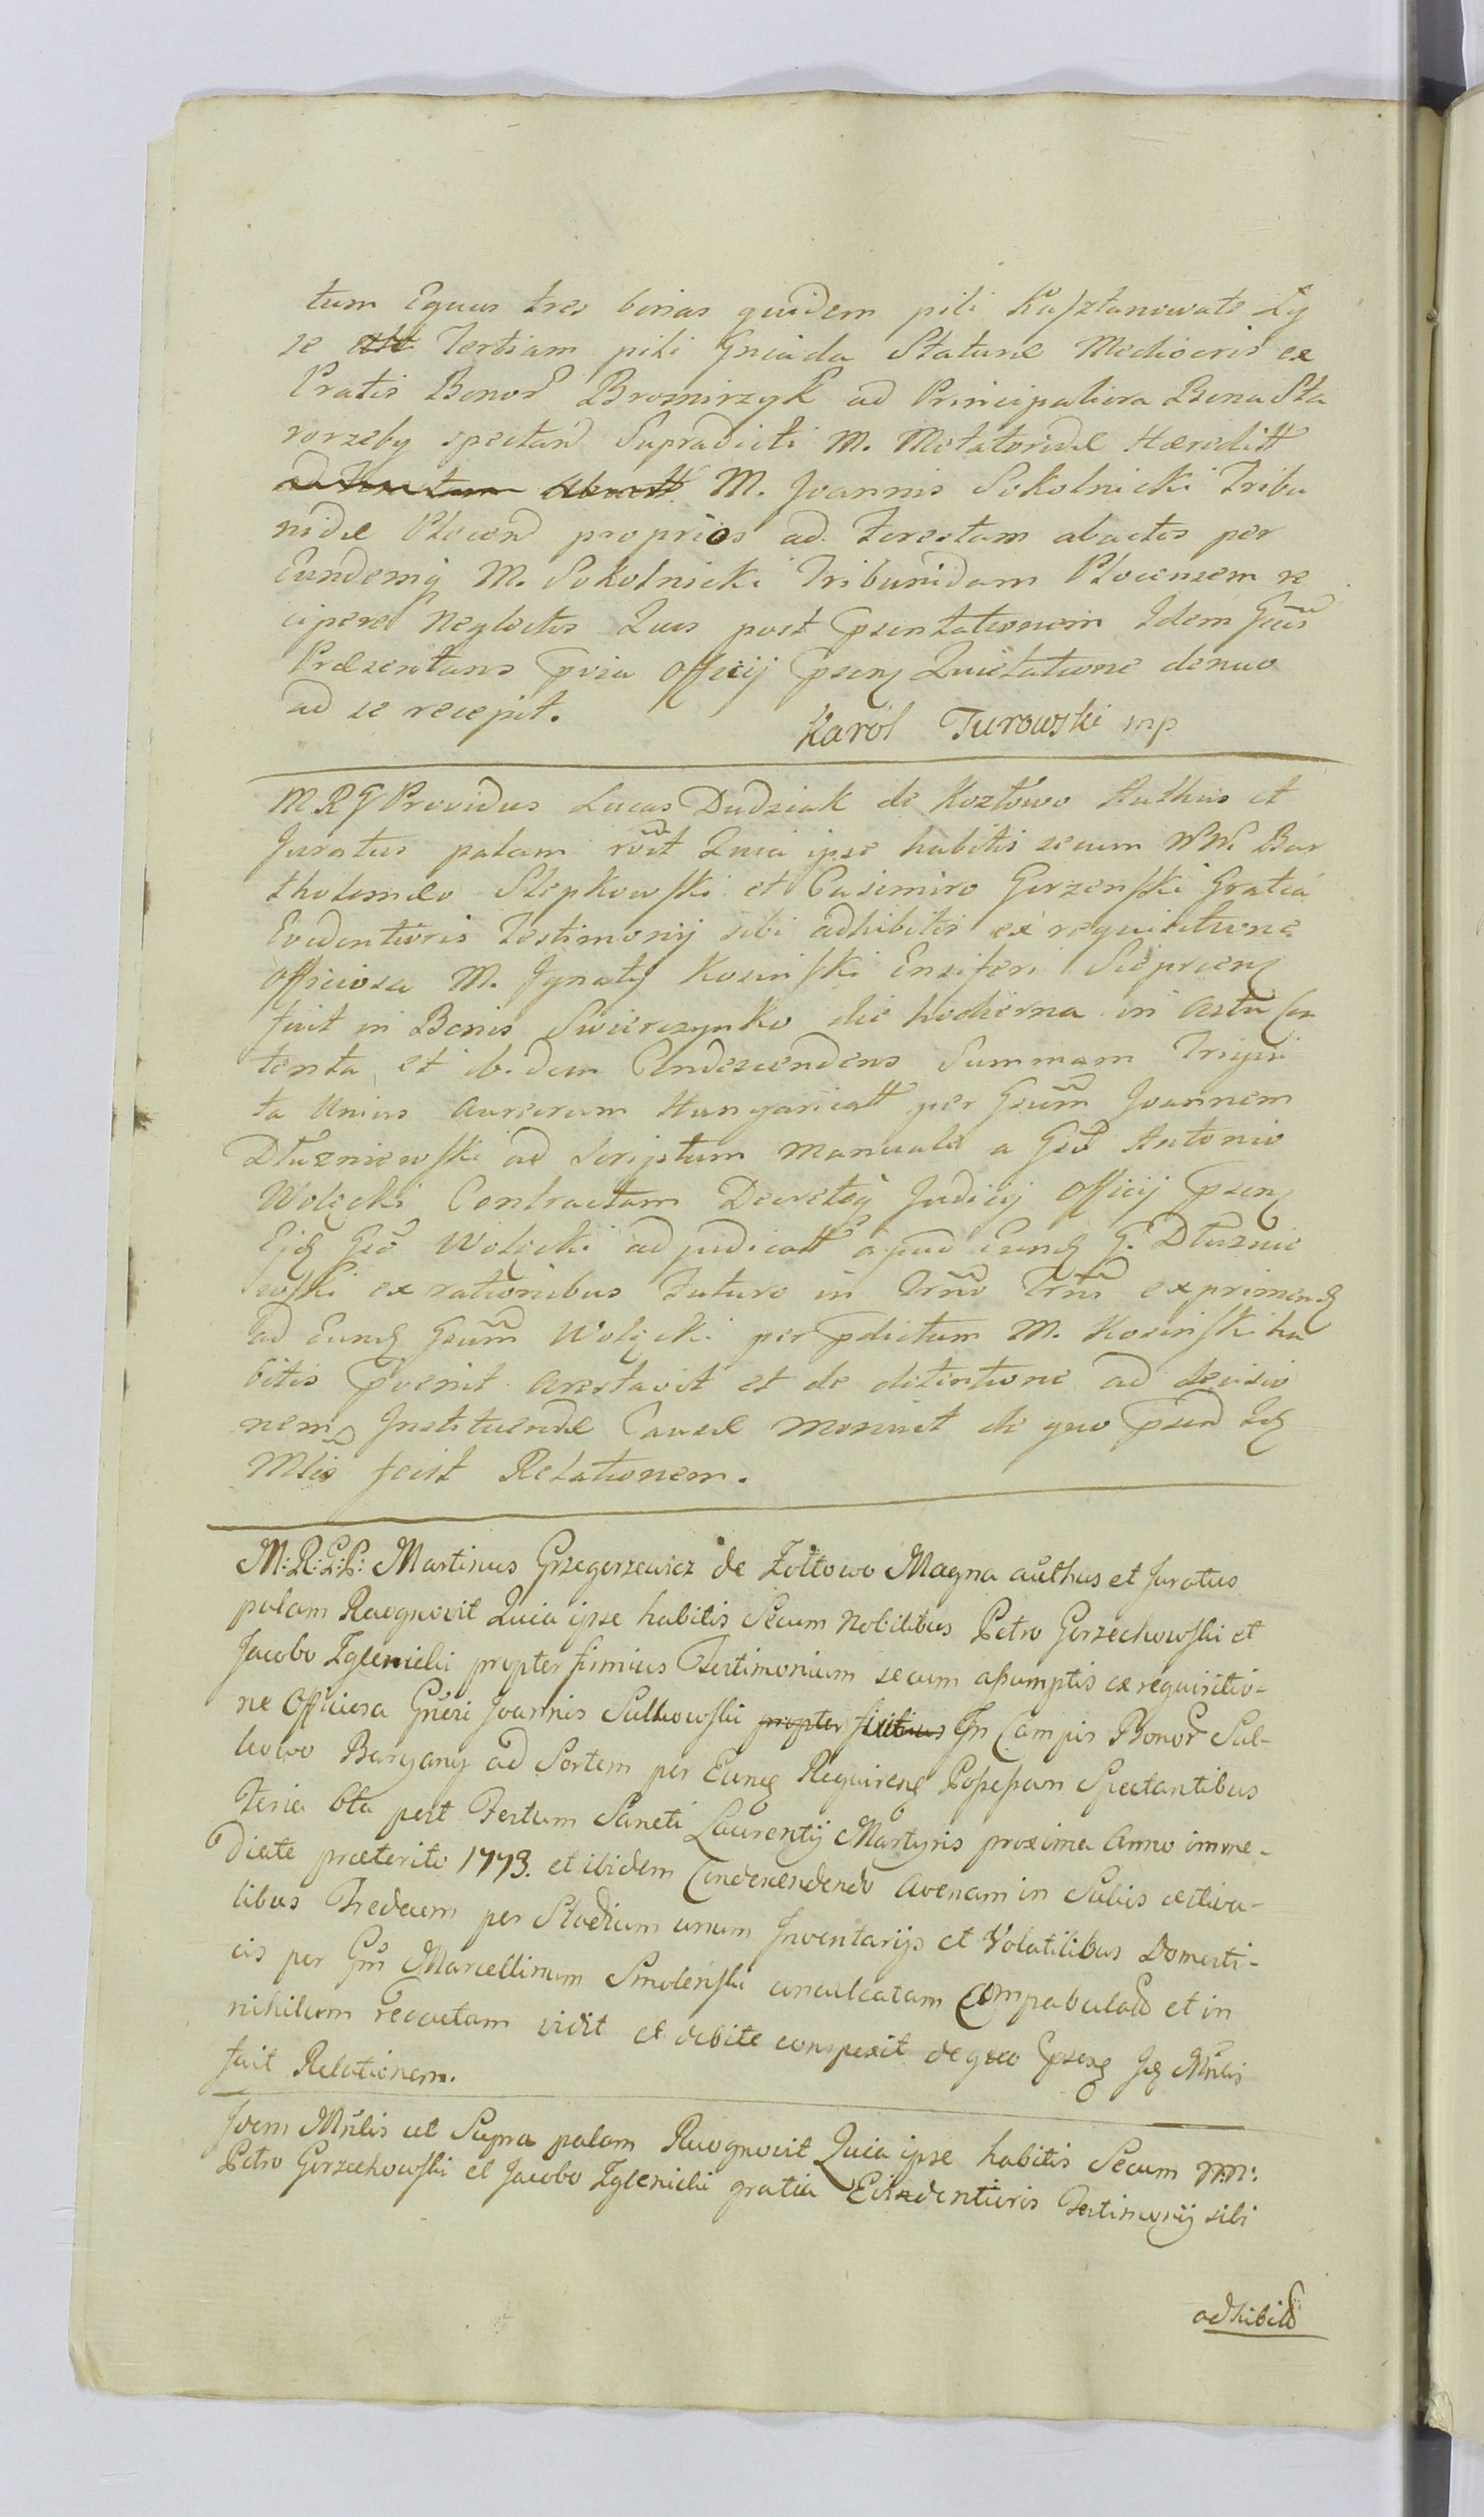 tum Equus tres binas quidem pili Kasztanowate Ły
se Tertiam pili Gniada Staturæ Mediocris ex
Pratis Bonor Bromirzyk ad Principaliora Bona Sta
rorzeby spectand Supradicti M. Metatoridæ Hæredit
M. Joannis Sokolnicki Tribu
nidæ Plocen proprios ad forestam abactos per
Eundemq M. Sokolnicki Tribunidam Plocensem re
cipere neglectos Quos post pæsentationem Idem Gsus
Præsentans pvia officij pæsen Quietatione denuo
ad se recepit.
Karol Turowski mp
M R G Providus Lucas Dudziak de Kozłowo Authus et
Juratus palam rvit Quia ipse habitis secum NN. Bar
tholomeo Slepkowski et Casimiro Gorzenski Gratia
Evidentioris Testimonij sibi adhibitis ex requisitione
officiosa M. Ignatij Kosinski Ensiferi Sieprcen
fuit in Bonis Swierczynko die hodierna in Actu Con
tenta et ibidem Condescendens Summam Trigin
ta Unius aureorum Hungaricall per Gsum Joannem
Dłuzniewski ad Scriptum manuale a Gso Antonio
Wolęcki Contractam Decretoq Judicij Officij pæsen
Ejd Gso Wolęcki adjudicatt apud Eund G. Dłuznie
wski ex rationibus futuro in Trno Trnis expriment
ad Eund Gsum Wolęcki per pdictum M. Kosinski ha
bitis pvenit Arestavit et de detentione ad decisio
nem Instituendæ Causæ monuit de quo pæsen Id
Mlis fecit Relationem.
M: R: G: P: Martinus Grzegorzewicz de Zołtowo Magna authus et Juratus
palam Recognovit Quia ipse habitis Secum Nobilibus Petro Gorzechowski et
Jacobo Zglenicki propter firmius Testimonium secum assumptis ex requisitio-
ne Officiosa Gnesi Joannis Sulkowski propter firmius In Campis Bonor Sul-
kowo Baryany ad Sortem per Eund Requirent Possessam Spectantibus
Feria 6ta post Festum Sancti Laurentij Martyris proxima Anno imme-
diate præterito 1773. et ibidem Condescendendo avenam in Sulcis æstiva-
libus Tredecem per Stadium unum Inventarijs et Volatilibus Domesti-
cis per Gm Marcellinum Smolenski conculcatam Compabulat et in
nihilum redactam vidit et debite conspexit de quo pæsens Id Mnlis
fecit Relationem.
Idem Mnlis ut Supra palam Recognovit Quia ipse habitis Secum NN:
Petro Gorzechowski et Jacobo Zglenicki gratia Evidentioris Testimonij sibi
adhibitis